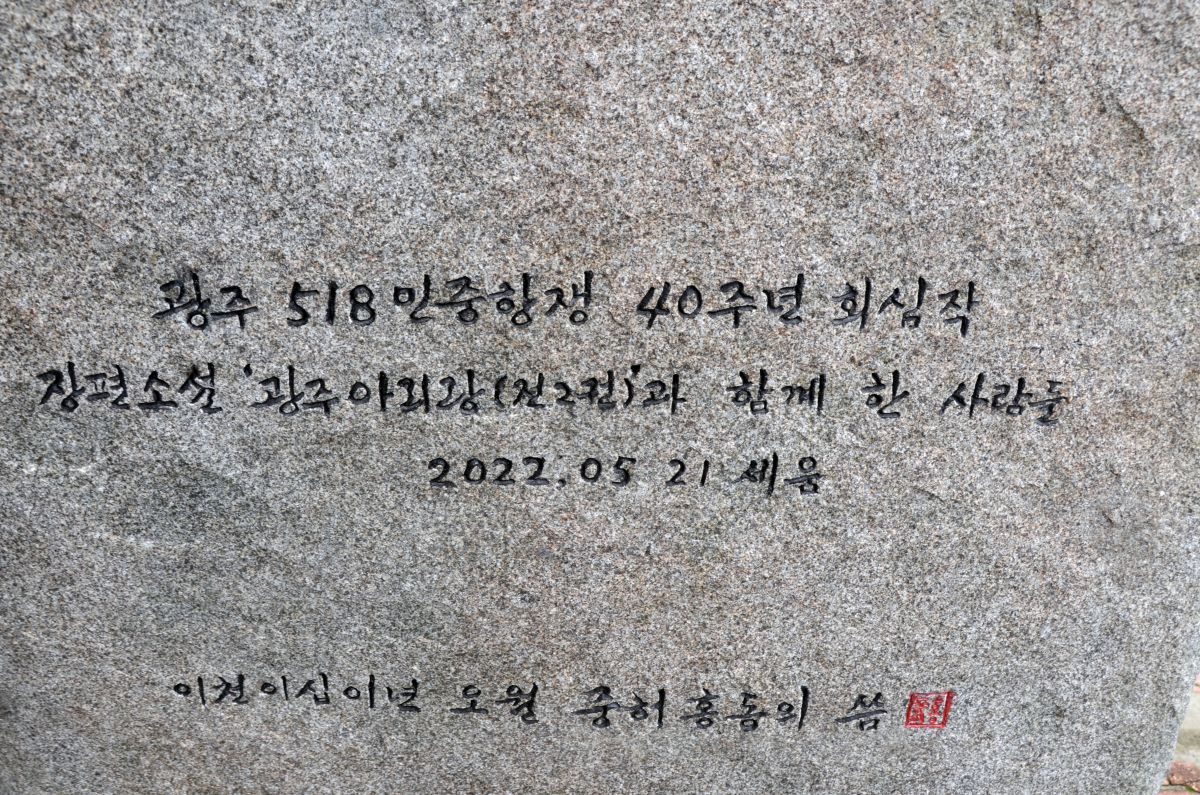 광주 518민중항쟁 40주년 회심작
장편소설 '광주아리랑(전2권)'과 함께 한 사람들
2022.05 21 세움
이천이십이년 오월 중허 홍동의 씀